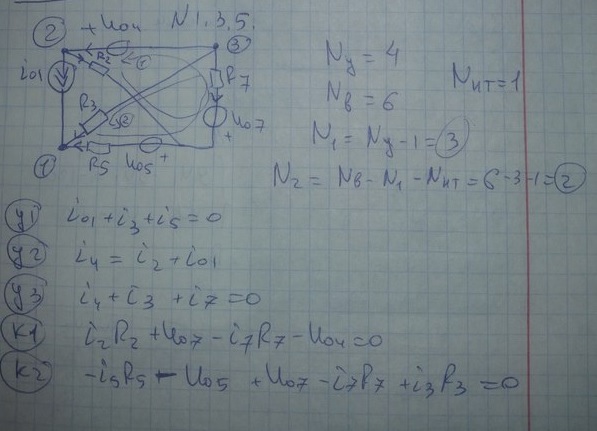 N 1.3.5.
2 + u04 3
i01 R2
R7
R3
u07
+
1 R5 u05 +
Nу = 4
Nв = 6
Nит = 1
N1 = Nу - 1 = 3
N2 = Nв - N1 - Nит = 6-3-1 = 2
у1 i01 + i3 + i5 = 0
у2 i4 = i2 + i01
у3 i4 + i3 + i7 = 0
к1 i2R2 + u07 - i7R7 - u04 = 0
к2 -i5R5 - u05 + u07 - i7R7 + i3R3 = 0